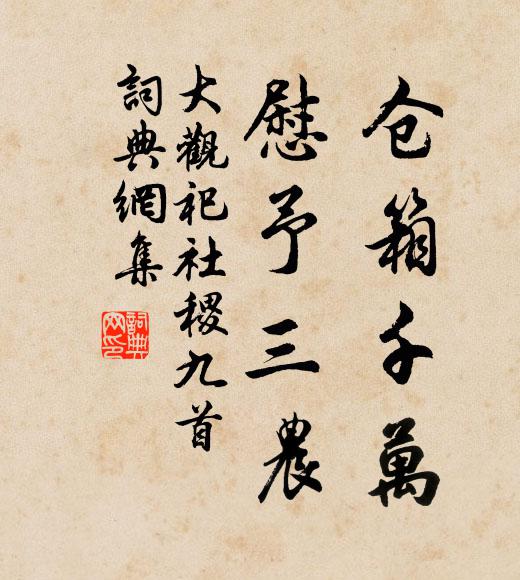 仓箱千萬
慰予三農
大觀祀社稷九首
詞典網集
詞典網印